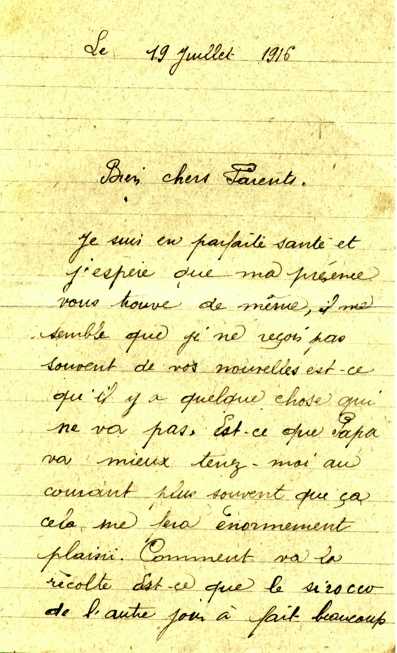 Le 19 Juillet 1916
Bien chers Parents.
Je suis en parfaite santé et
j'espère que ma présence
vous trouve de même, il me
semble que je ne reçois pas
souvent de vos nouvelles est-ce
qu'il y a quelque chose qui
ne va pas. Est-ce que Papa
va mieux tenez-moi au
courant plus souvent que ça
cela me fera énormement
plaisir. Comment va la
récolte Est-ce que le sirocco
de l'autre jour à fait beaucoup